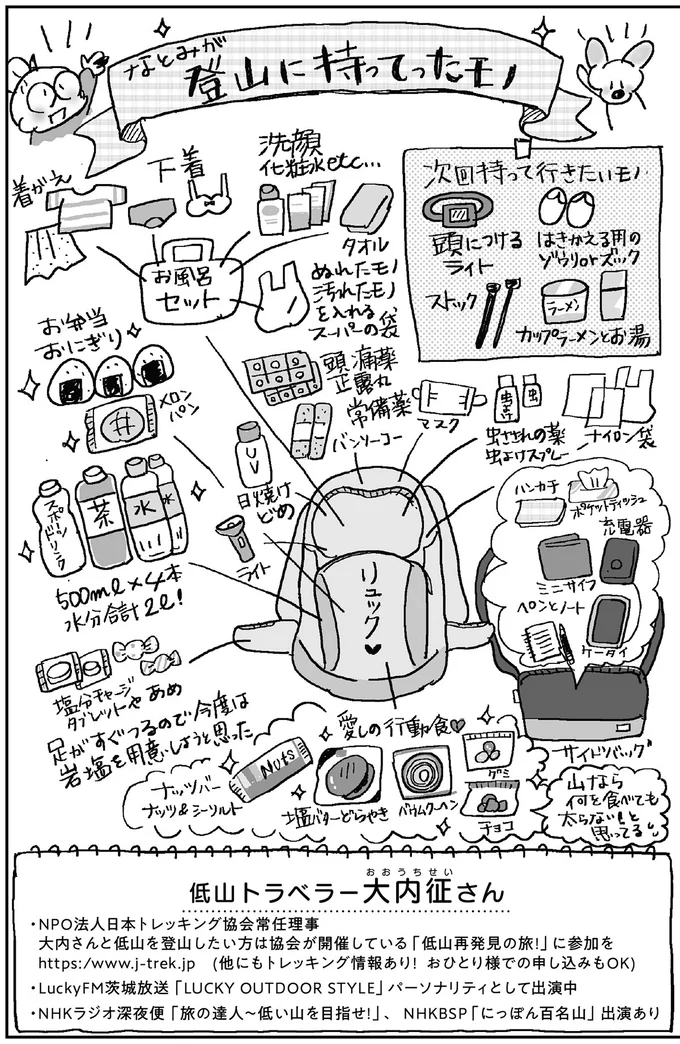 なとみが
登山に持ってったモノ
着がえ
下着
洗顔
化粧水etc...
タオル
お風呂
セット
ぬれたモノ
汚れたモノ
を入れる
スーパーの袋
次回持って行きたいモノ
頭につける
ライト
はきかえる用の
ゾウリorズック
ストック
ラーメン
カップラーメンとお湯
お弁当
おにぎり
メロン
パン
頭痛薬
正露丸
常備薬
バンソーコー
マスク
虫さされの薬
虫よけスプレー
ナイロン袋
UV
日焼け
どめ
ライト
スポーツドリンク
茶
水
水
500ml×4本
水分合計2l!
リュック♥
ハンカチ
ポケットティッシュ
充電器
ミニサイフ
ペンとノート
ケータイ
サイドバック
塩分チャージ
タブレットやあめ
足がすぐつるので今度は
岩塩を用意しようと思った
愛しの行動食♥
Nuts
ナッツバー
ナッツ&シーソルト
塩バターどらやき
バウムクーヘン
グミ
チョコ
山なら
何を食べても
太らない!と
思ってる
おおうちせい
低山トラベラー大内征さん
・NPO法人日本トレッキング協会常任理事
大内さんと低山を登山したい方は協会が開催している「低山再発見の旅!」に参加を
https:/www.j-trek.jp (他にもトレッキング情報あり! おひとり様での申し込みもOK)
・LuckyFM茨城放送「LUCKY OUTDOOR STYLE」パーソナリティとして出演中
・NHKラジオ深夜便「旅の達人~低い山を目指せ!」、NHKBSP「にっぽん百名山」出演あり